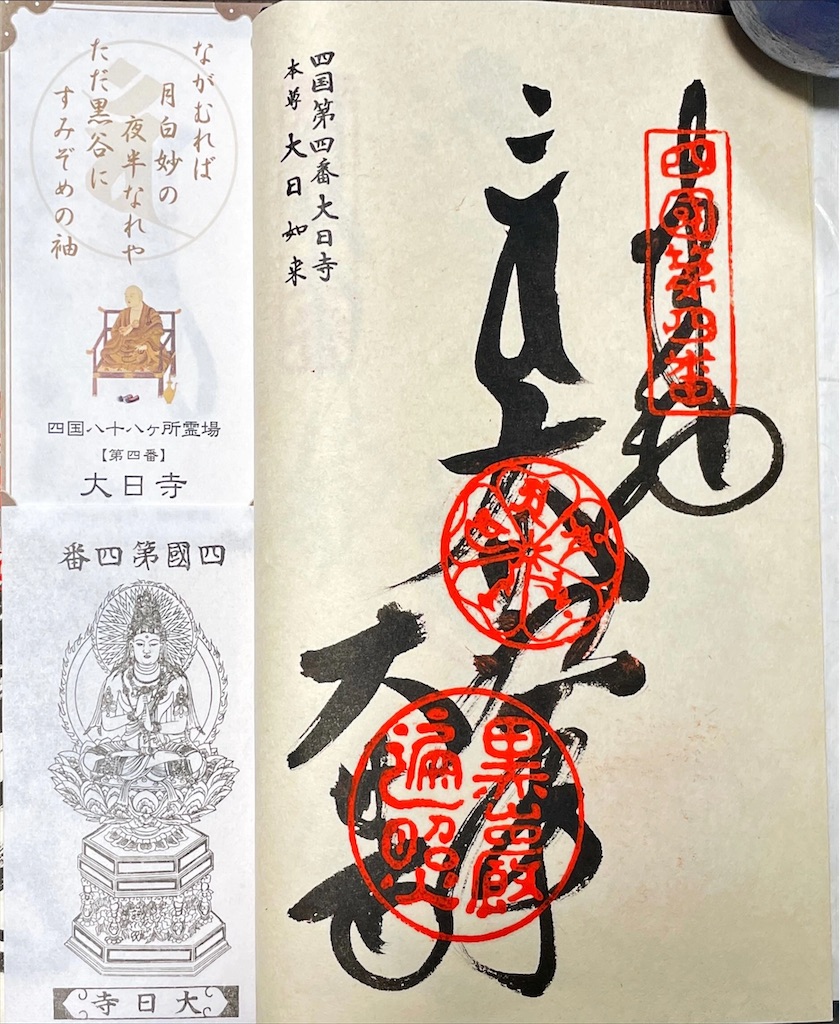 四国第四番大日寺
本尊 大日如来
奉納
四國第四番
大日寺
黒巖
遍照
ながむれば
月白妙の
夜半なれや
ただ黒谷に
すみぞめの袖
四国八十八ヶ所霊場
【第四番】
大日寺
四國第四番
大日寺